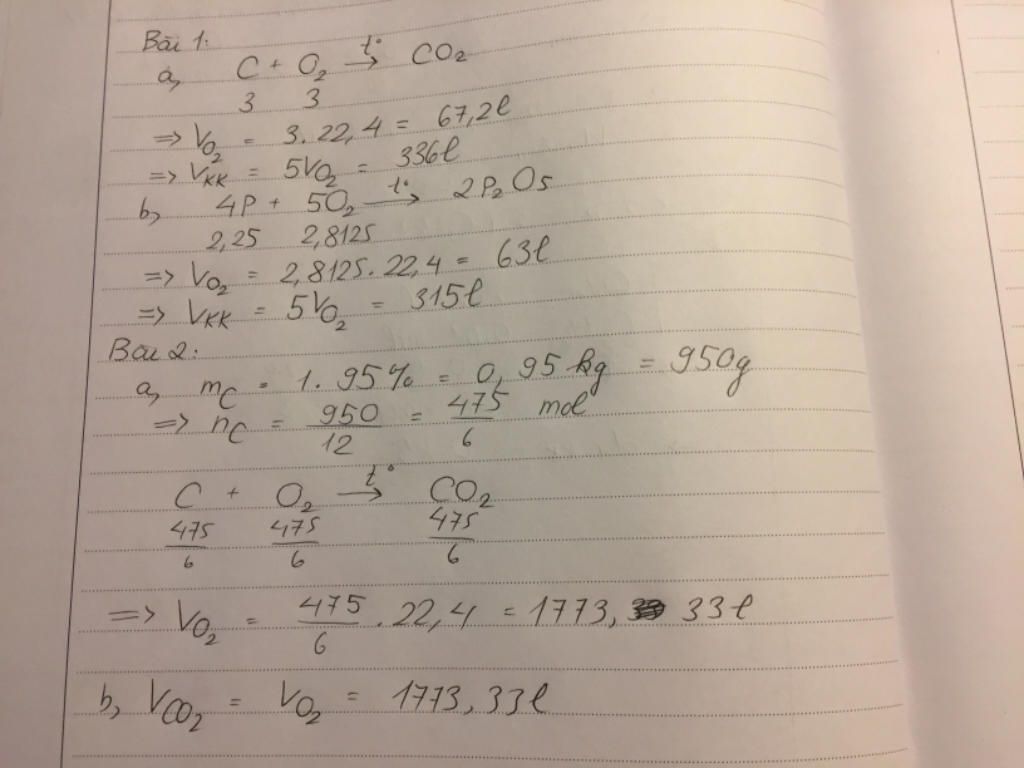 Bài 1:
a, C + O₂ →(t°) CO₂
3 3
=> V_O₂ = 3.22,4 = 67,2l
=> V_KK = 5V_O₂ = 336l
b, 4P + 5O₂ →(t°) 2P₂O₅
2,25 2,8125
=> V_O₂ = 2,8125.22,4 = 63l
=> V_KK = 5V_O₂ = 315l
Bài 2:
a, m_C = 1.95% = 0,95kg = 950g
=> n_C = 950/12 = 475/6 mol
C + O₂ →(t°) CO₂
475/6 475/6 475/6
=> V_O₂ = 475/6 . 22,4 = 1773,33l
b, V_CO₂ = V_O₂ = 1773,33l